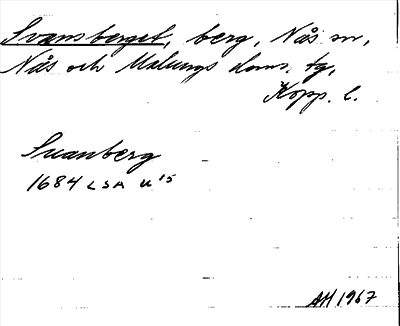 Svansberget, berg, Nås sn,
Nås och Malungs doms. tg,
Kopp. l.
Svanberg
1684 LSA U 15
AH 1967